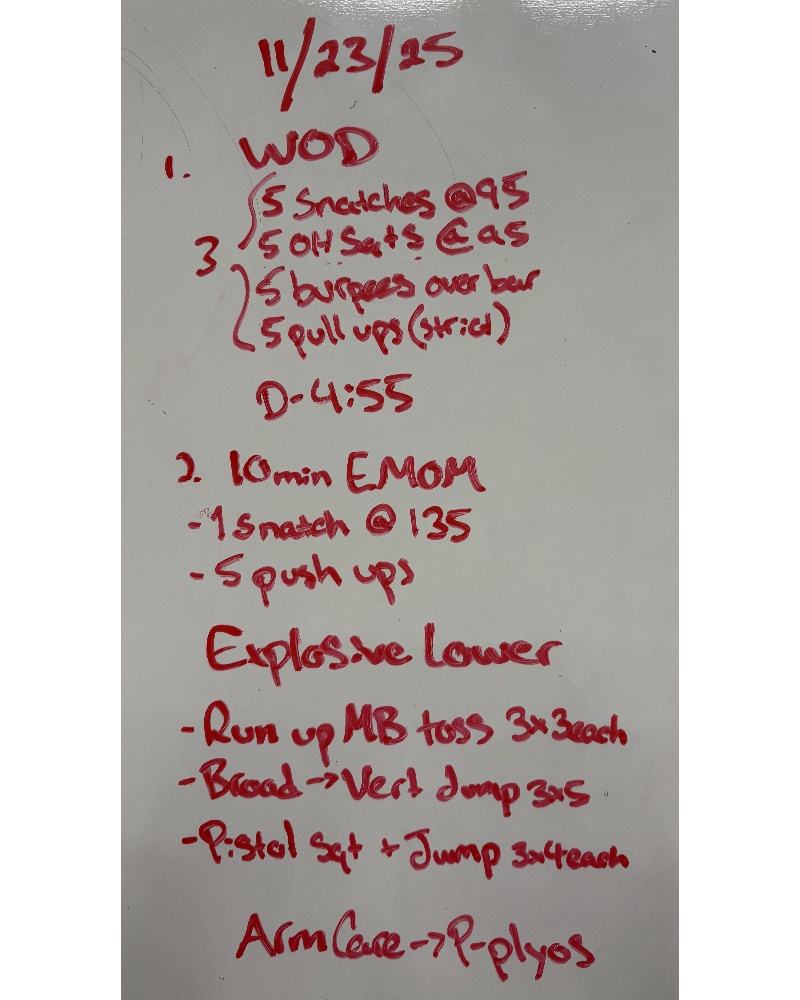 11/23/25
1. WOD
5 Snatches @95
3 5 OH Sqts @ 95
5 burpees over bar
5 pull ups (strict)
D-4:55
2. 10min EMOM
-1 snatch @ 135
-5 push ups
Explosive Lower
-Run up MB toss 3x3each
-Broad→Vert Jump 3x5
-Pistol Sqt + Jump 3x4each
Arm Care→P-plyos